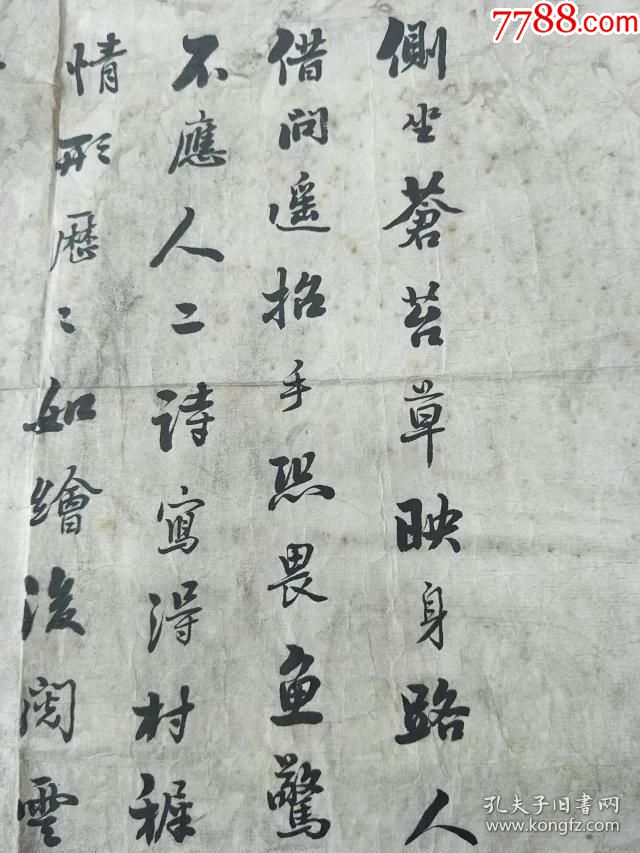 7788.com
側坐蒼苔草映身路人
借問遥招手恐畏魚驚
不應人二詩寫得村稚
情形歷〻如繪後閱雲
孔夫子旧书网
www.kongfz.com